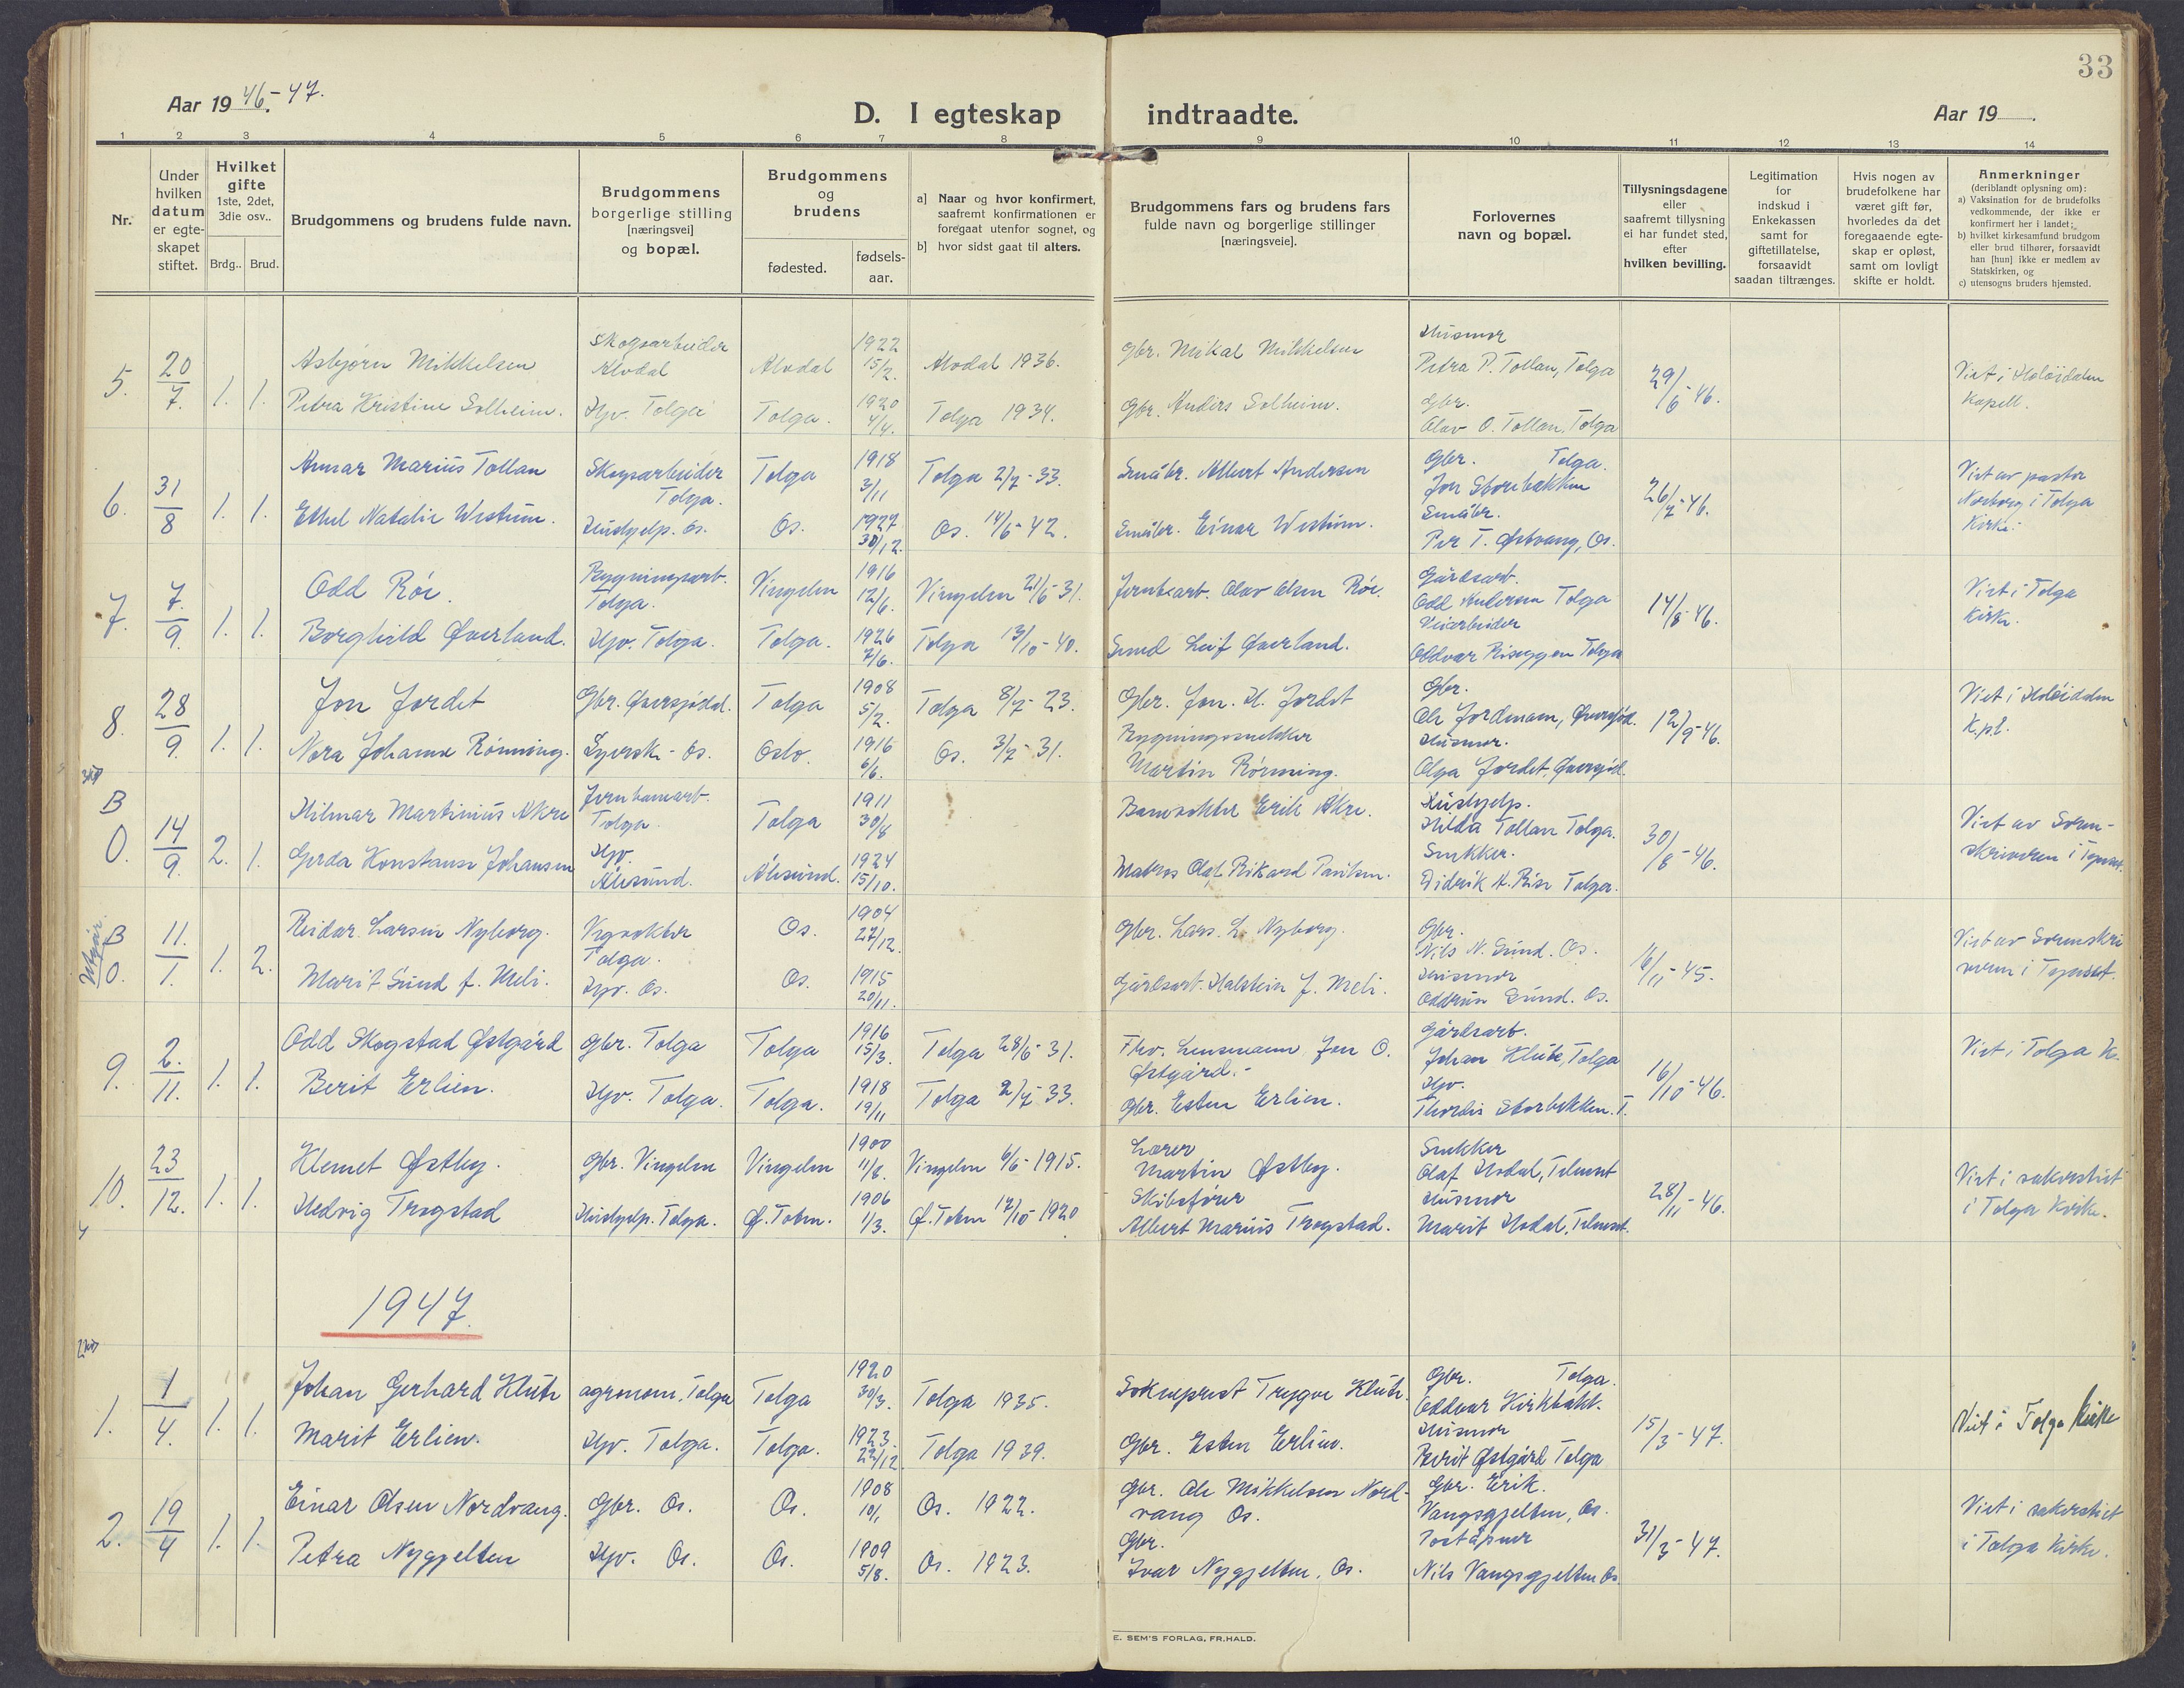 33
Aar 19 46.-47.
D. I egteskap indtraadte.
Aar 19 .
1 2 3 4 5 6 7 8 9 10 11 12 13 14
Nr.
Under hvilken datum er egteskapet stiftet.
Hvilket gifte 1ste, 2det, 3die osv..
Brdg.. Brud.
Brudgommens og brudens fulde navn.
Brudgommens borgerlige stilling [næringsvei] og bopæl.
Brudgommens og brudens
fødested.
fødselsaar.
a) Naar og hvor konfirmert, saafremt konfirmationen er foregaat utenfor sognet, og
b) hvor sidst gaat til alters.
Brudgommens fars og brudens fars fulde navn og borgerlige stillinger [næringsveie].
Forlovernes navn og bopæl.
Tillysningsdagene eller saafremt tillysning ei har fundet sted, efter hvilken bevilling.
Legitimation for indskud i Enkekassen samt for giftetillatelse, forsaavidt saadan tiltrænges.
Hvis nogen av brudefolkene har været gift før, hvorledes da det foregaaende egteskap er opløst, samt om lovligt skifte er holdt.
Anmerkninger
(deriblandt oplysning om):
a) Vaksination for de brudefolks vedkommende, der ikke er konfirmert her i landet;
b) hvilket kirkesamfund brudgom eller brud tilhører, forsaavidt han [hun] ikke er medlem av Statskirken, og
c) utensogns bruders hjemsted.
5. 20/7. 1. 1.
Asbjørn Mikkelsen Skogsarbeider Alvdal Alvdal 1922 15/2. Alvdal 1936. Gbr. Mikal Mikkelsen
Petra Kristine Solheim. Hjv. Tolga Tolga. 1920 4/4. Tolga 1934. Gbr. Anders Solheim.
Husmor Petra P. Tollan, Tolga
Gbr. Olav O. Tollan, Tolga
29/6-46.
Viet i Holøidalen Kapell.
6. 31/8 1. 1.
Annar Marius Tollan Skogsarbeider Tolga. Tolga 1918 3/11 Tolga 2/7-33. Småbr. Albert Andersen
Ethel Natalie Westum. Hushjelp. Os. Os. 1927 30/12. Os. 14/6-42. Småbr. Einar Westum.
Gbr. Tolga. Jon Storbekken
Småbr. Per T. Østvang, Os.
26/7-46.
Viet av pastor Norborg i Tolga Kirke.
7. 7./9. 1. 1.
Odd Røe. Bygningsarb. Tolga. Vingelen 1916 12/6. Vingelen 21/6-31. Jernb.arb. Olav Olsen Røe.
Borghild Øverland. Hjv. Tolga. Tolga. 1926 7/6. Tolga 13/10-40. Smed Leif Øverland.
Gårdsarb. Odd Andersen Tolga
Veiarbeider Oddvar Riseggen Tolga
14/8-46.
Viet i Tolga Kirke.
8. 28/9. 1. 1.
Jon Jordet Gbr. Øversjødal. Tolga 1908 5/2. Tolga 8/7-23. Gbr. Jon. H. Jordet
Nora Johanne Rønning. Syersk - Os. Oslo. 1916 6/6. Os. 3/7-31. Bygningssnekker Martin Rønning.
Gbr. Ole Jordmoen, Øversjød.
Husmor. Olga Jordet, Øversjød.
12/9-46.
Viet i Holøidalen K.pl.
B
O. 14/9. 2. 1.
Hilmar Martinius Akre Jernbanearb. Tolga. Tolga 1911 30/8 Banevokter Erik Akre.
Gerda Konstanse Johansen Hjv. Ålesund. Ålesund. 1924 15/10. Matros Olaf Rikard Paulsen.
Hushjelp. Hilda Tollan Tolga.
Snekker. Didrik H. Rise Tolga.
30/8-46.
Viet av Soren-
skriveren i Tynset.
Utgår.
B
O. 11./1. 1. 2.
Reidar Larsen Nyborg. Vegvokter Tolga. Os. 1904 27/12. Gbr. Lars. L. Nyborg.
Marit Sund f. Meli. Hjv. Os. Os. 1915 20/11. Gårdsarb. Halstein J. Meli.
Gbr. Nils N. Sund. Os.
Husmor Oddrun Sund. Os.
16/11-45.
Viet av Sorenskri
veren i Tynset.
9. 2./11. 1. 1.
Odd Skogstad Østgård Gbr. Tolga Tolga 1916 15/3. Tolga 28/6-31. Fhv. Lensmann Jon O. Østgård.-
Berit Erlien. Hjv. Tolga. Tolga. 1918 19/11 Tolga 2/7-33. Gbr. Esten Erlien.
Gårdsarb. Johan Klüte, Tolga
Hjv. Thordis Storbekken. T.
16/10-46.
Viet i Tolga K.
10. 23/12. 1. 1.
Klemet Østby. Gbr. Vingelen Vingelen 1900 11/8. Vingelen 6/6-1915. Lærer Martin Østby.
Hedvig Trogstad Hushjelp. Tolga. Ø. Toten. 1906 1/3. Ø. Toten 17/10-1920. Skibsfører Albert Marius Trogstad.
Snekker Olaf Hodal, Telneset
Husmor Marit Hodal, Telneset.
28/11-46.
Viet i sakerstiet
i Tolga Kirke.
1947.
1. 1/4. 1. 1.
Johan Gerhard Klüte agronom, Tolga Tolga 1920 30/3. Tolga 1935. Sokneprest Trygve Klüte.
Marit Erlien. Hjv. Tolga. Tolga. 1923. 22/12. Tolga 1939. Gbr. Esten Erlien.
Gbr. Tolga. Oddvar Kirkbakk.
Husmor Berit Østgård Tolga
15/3-47.
Viet i Tolga kirke
2. 19/4 1. 1.
Einar Olsen Nordvang. Gbr. Os. Os. 1908 10/1 Os. 1922. Gbr. Ole Mikkelsen Nord-
vang Os.
Petra Nygjelten Hjv. Os. Os. 1909 5/8. Os. 1923. Gbr. Ivar Nygjelten, Os.
Gbr. Erik. Vangsgjelten, Os.
Poståpner Nils Vangsgjelten Os.
31/3-47.
Viet i sakerstiet
i Tolga Kirke.
E. SEM'S FORLAG, FR.HALD.